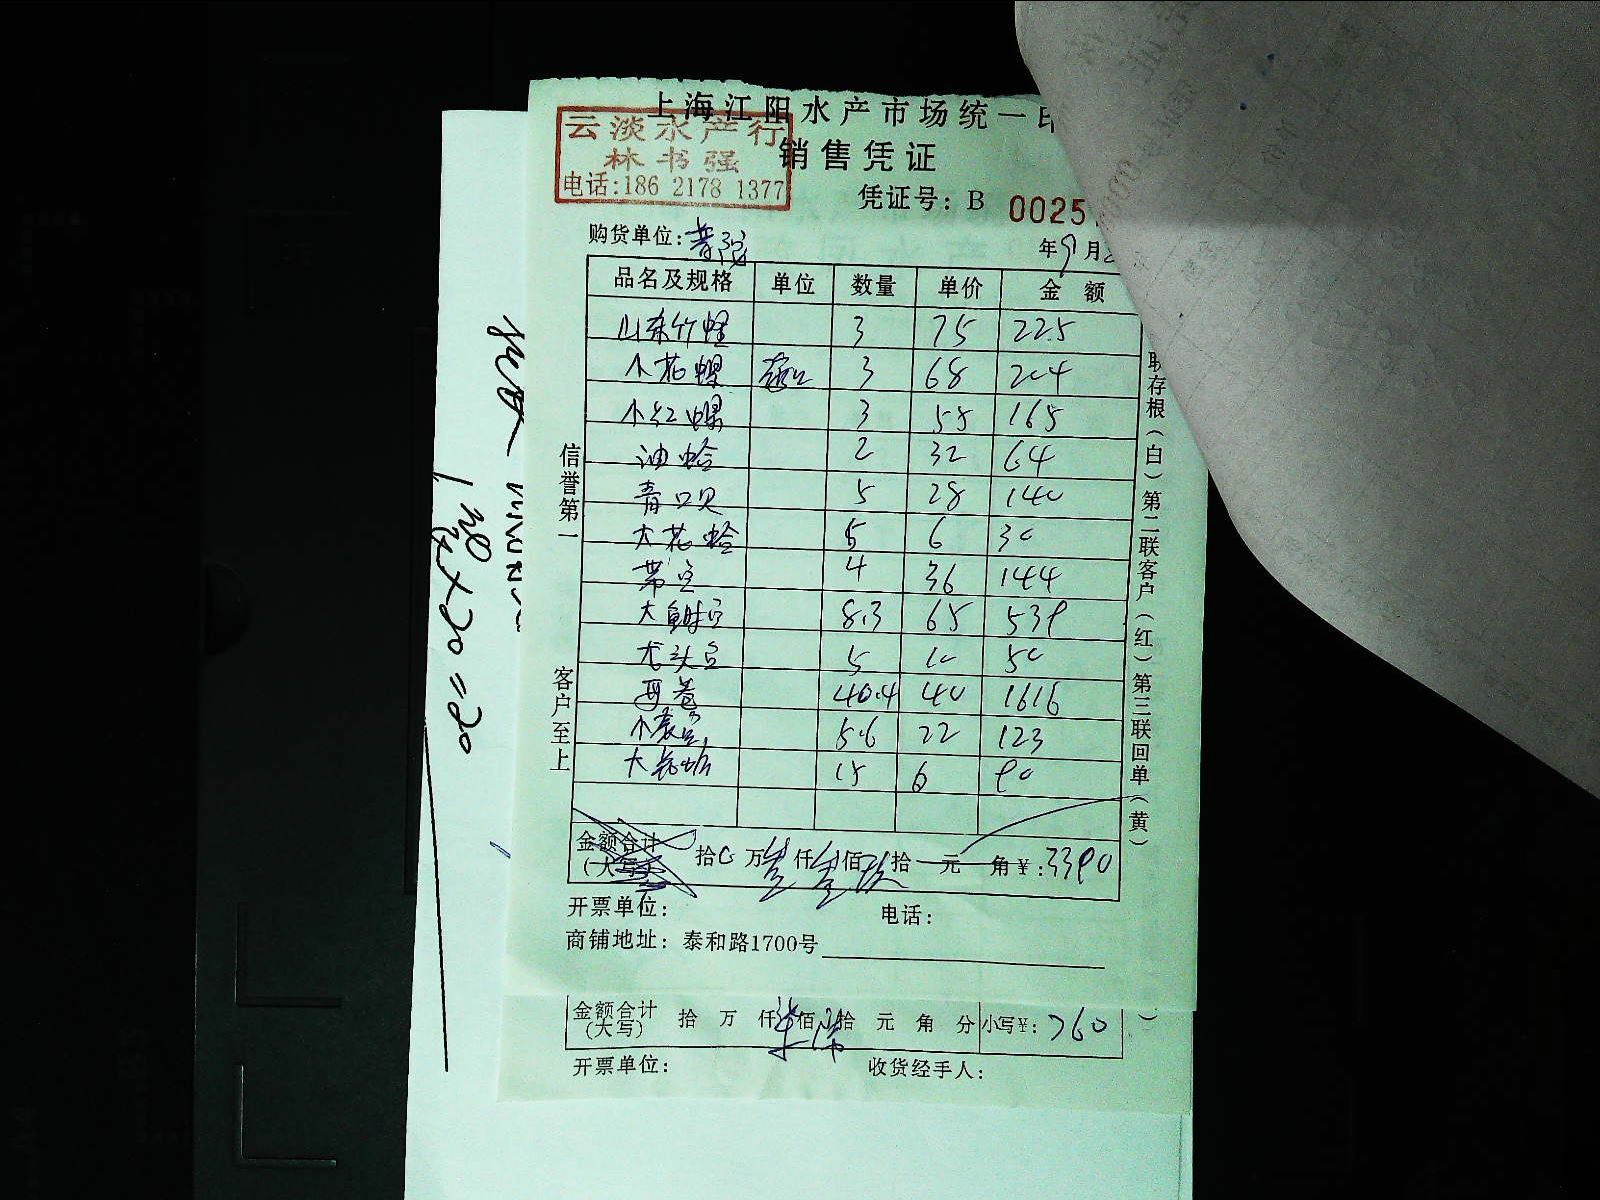 上海江阳水产市场统一印
云淡水产行
林书强
电话:186 2178 1377
销售凭证
凭证号: B 0025
购货单位: 普陀
年9月
品名及规格 单位 数量 单价 金额
山东竹蛏 3 75 225
小花螺 3 68 204
小红螺 3 55 165
油蛤 2 32 64
青口贝 5 28 140
大花蛤 5 6 30
带鱼 4 36 144
大鲥鱼 8.3 65 539
龙头鱼 5 10 50
40.4 40 1616
小 鱼 5.6 22 123
大 15 6 90
金额合计(大写) 拾 万叁仟叁佰玖拾元角¥:3390
开票单位: 电话:
商铺地址: 泰和路1700号
信誉第一
客户至上
联存根(白)第二联客户(红)第三联回单(黄)
金额合计(大写) 拾万仟柒佰陆拾元角分 小写¥: 760
开票单位: 收货经手人:
×20=20